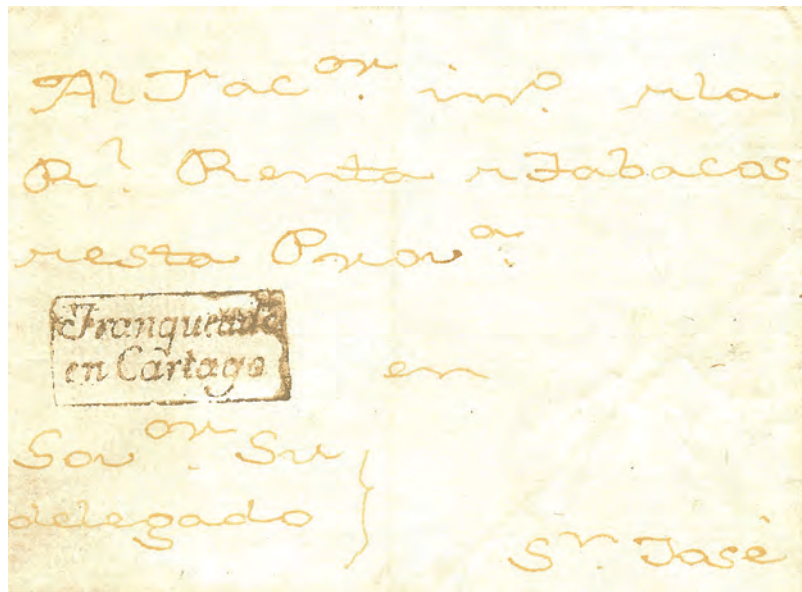 Al Fac.ᵒʳ int.º rla
R.ˡ Renta r Tabacos
resta Prov.ᵃ
Franqueado
en Cartago
en
Gov.ᵒʳ Su
delegado
S.ⁿ José